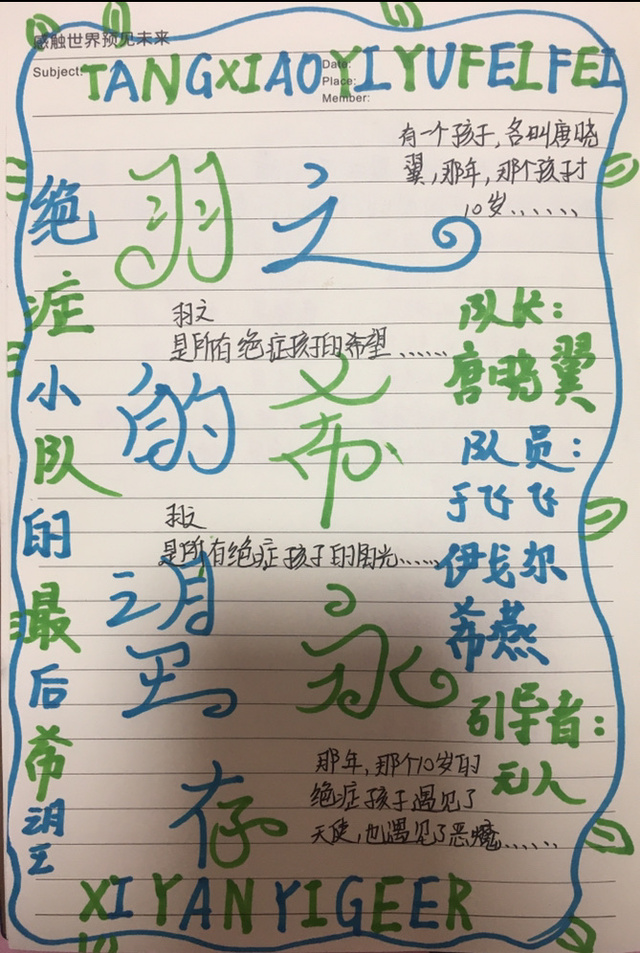 感触世界预见未来
Subject:
Date:
Place:
Member:
TANGXIAOYI YUFEIFEI
有一个孩子,名叫唐晓
翼,那年,那个孩子才
10岁......
绝症小队的最后希望
羽之
羽文
是所有绝症孩子的希望......
的希
羽文
是所有绝症孩子的阳光......
望永
存
队长:
唐晓翼
队员:
于飞飞
伊戈尔
希燕
引导者:
无人
那年,那个10岁的
绝症孩子遇见了
天使,也遇见了恶魔......
XIYANYIGEER